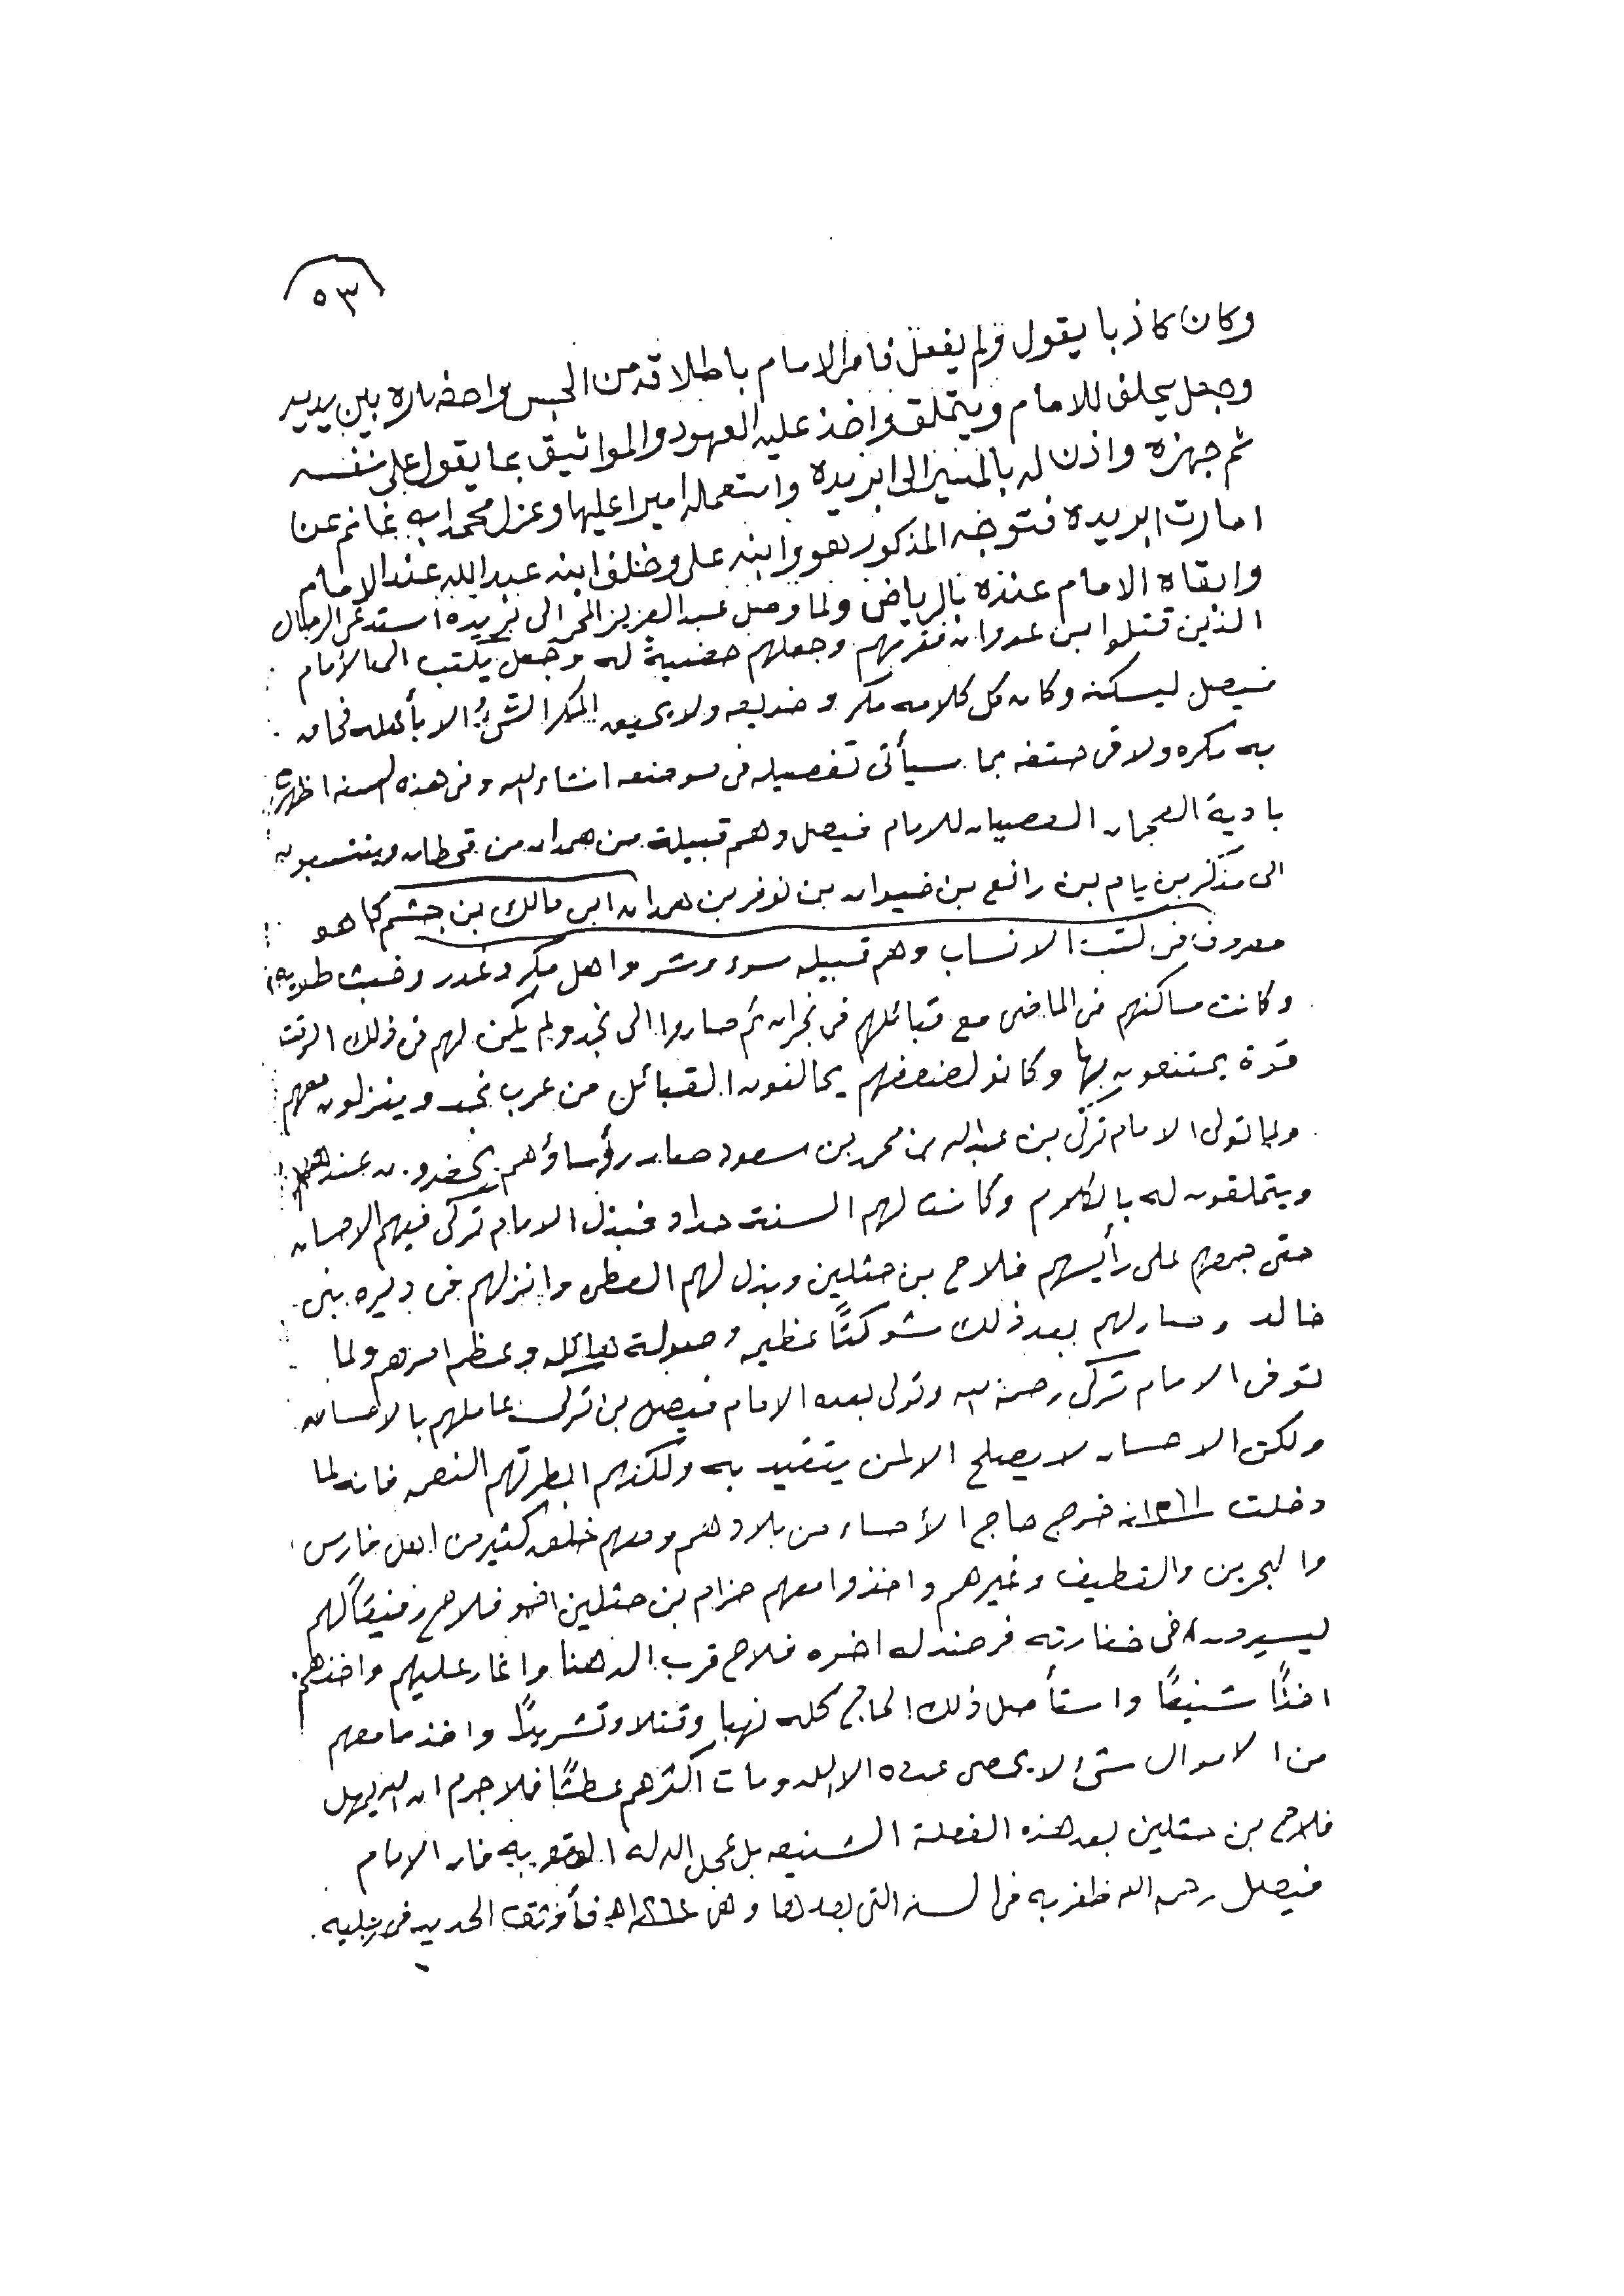 ٥٣
وكان كاذبا يقول ولم يفعل فامر الامام باطلاقه من الحبس واحضاره بين يديه
وجعل يحلف للامام ويتملق واخذ عليه العهود والمواثيق بما يقول على نفسه
ثم جهزه واذن له بالمسير الى ابريده واستعمله اميرا عليها وعزل محمد ابن غانم عن
امارت ابريده فتوجه المذكور هو وابنه علي وخلف ابنه عبدالله عند الامام
وابقاه الامام عنده بالرياض ولما وصل عبدالعزيز المحمد الى بريده استدعى الرجال
الذين قتلوا بن عدوان فقربهم وجعلهم حضية له وجعل يكتب الى الامام
فيصل ليسكنه وكان كل كلامه مكر وخديعه ولا يحيق المكر السيء الا بأهله فحاق
به مكره ولاقى حتفه بما سيأتي تفصيله في موضعه انشاء الله وفي هذه السنه اظهرت
بادية العجمان العصيان للامام فيصل وهم قبيلة من همدان من قحطان وينتسبون
الى مذكر بن يام بن رافع بن خيوان بن نوفر بن همدان ابن مالك بن جشم كما هو
معروف في كتب الانساب وهم قبيله سوء وشر واهل مكر وغدر وخبث طويه
وكانت مساكنهم في الماضي مع قبائلهم في نجران ثم صاروا الى نجد ولم يكن لهم في ذلك الوقت
قوة يمتنعون بها وكانو لضعفهم يحالفون القبائل من عرب نجد وينزلون معهم
ولما تولى الامام تركي بن عبدالله بن محمد بن سعود صار رؤساؤهم يحضرون عنده
ويتملقون له بالكلام وكانت لهم السنة حداد فبذل الامام تركي فيهم الاحسان
حتى جمعهم على رأيسهم فلاح بن حثلين وبذل لهم العطى وانزلهم في ديره بني
خالد وصار لهم بعد ذلك شوكتاً عظيمه وصولة هائله وعظم امرهم ولما
توفى الامام تركي رحمة الله وتولى بعده الامام فيصل بن تركي عاملهم بالاحسان
ولكن الاحسان لا يصلح الا لمن يتقيد به ولكنهم ابطرتهم النعمه فانه لما
دخلت ١٢٦١نه خرج حاج الأحساء من بلادهم ومعهم خلق كثير من اهل فارس
والبحرين والقطيف وغيرهم واخذوا معهم حزام بن حثلين اخو فلاح رفيقاً لهم
ليسيرون في خفارته فرصد له اخوه فلاح قرب الدهنا واغار عليهم واخذهم
اخذاً شنيعاً واستأصل ذلك الحاج كله نهبا وقتلا وتشريداً واخذ ما معهم
من الاموال شيء لا يحصى عدده الا الله ومات اكثرهم عطشاً فلا جرم ان الله يمهل
فلاح بن حثلين بعد هذه الفعلة الشنيعه بل عجل الله له العقوبه فان الامام
فيصل رحمه الله ظفر به في السنه التي بعدها وهي ١٢٦٢هـ فأوثق الحديد في رجليه